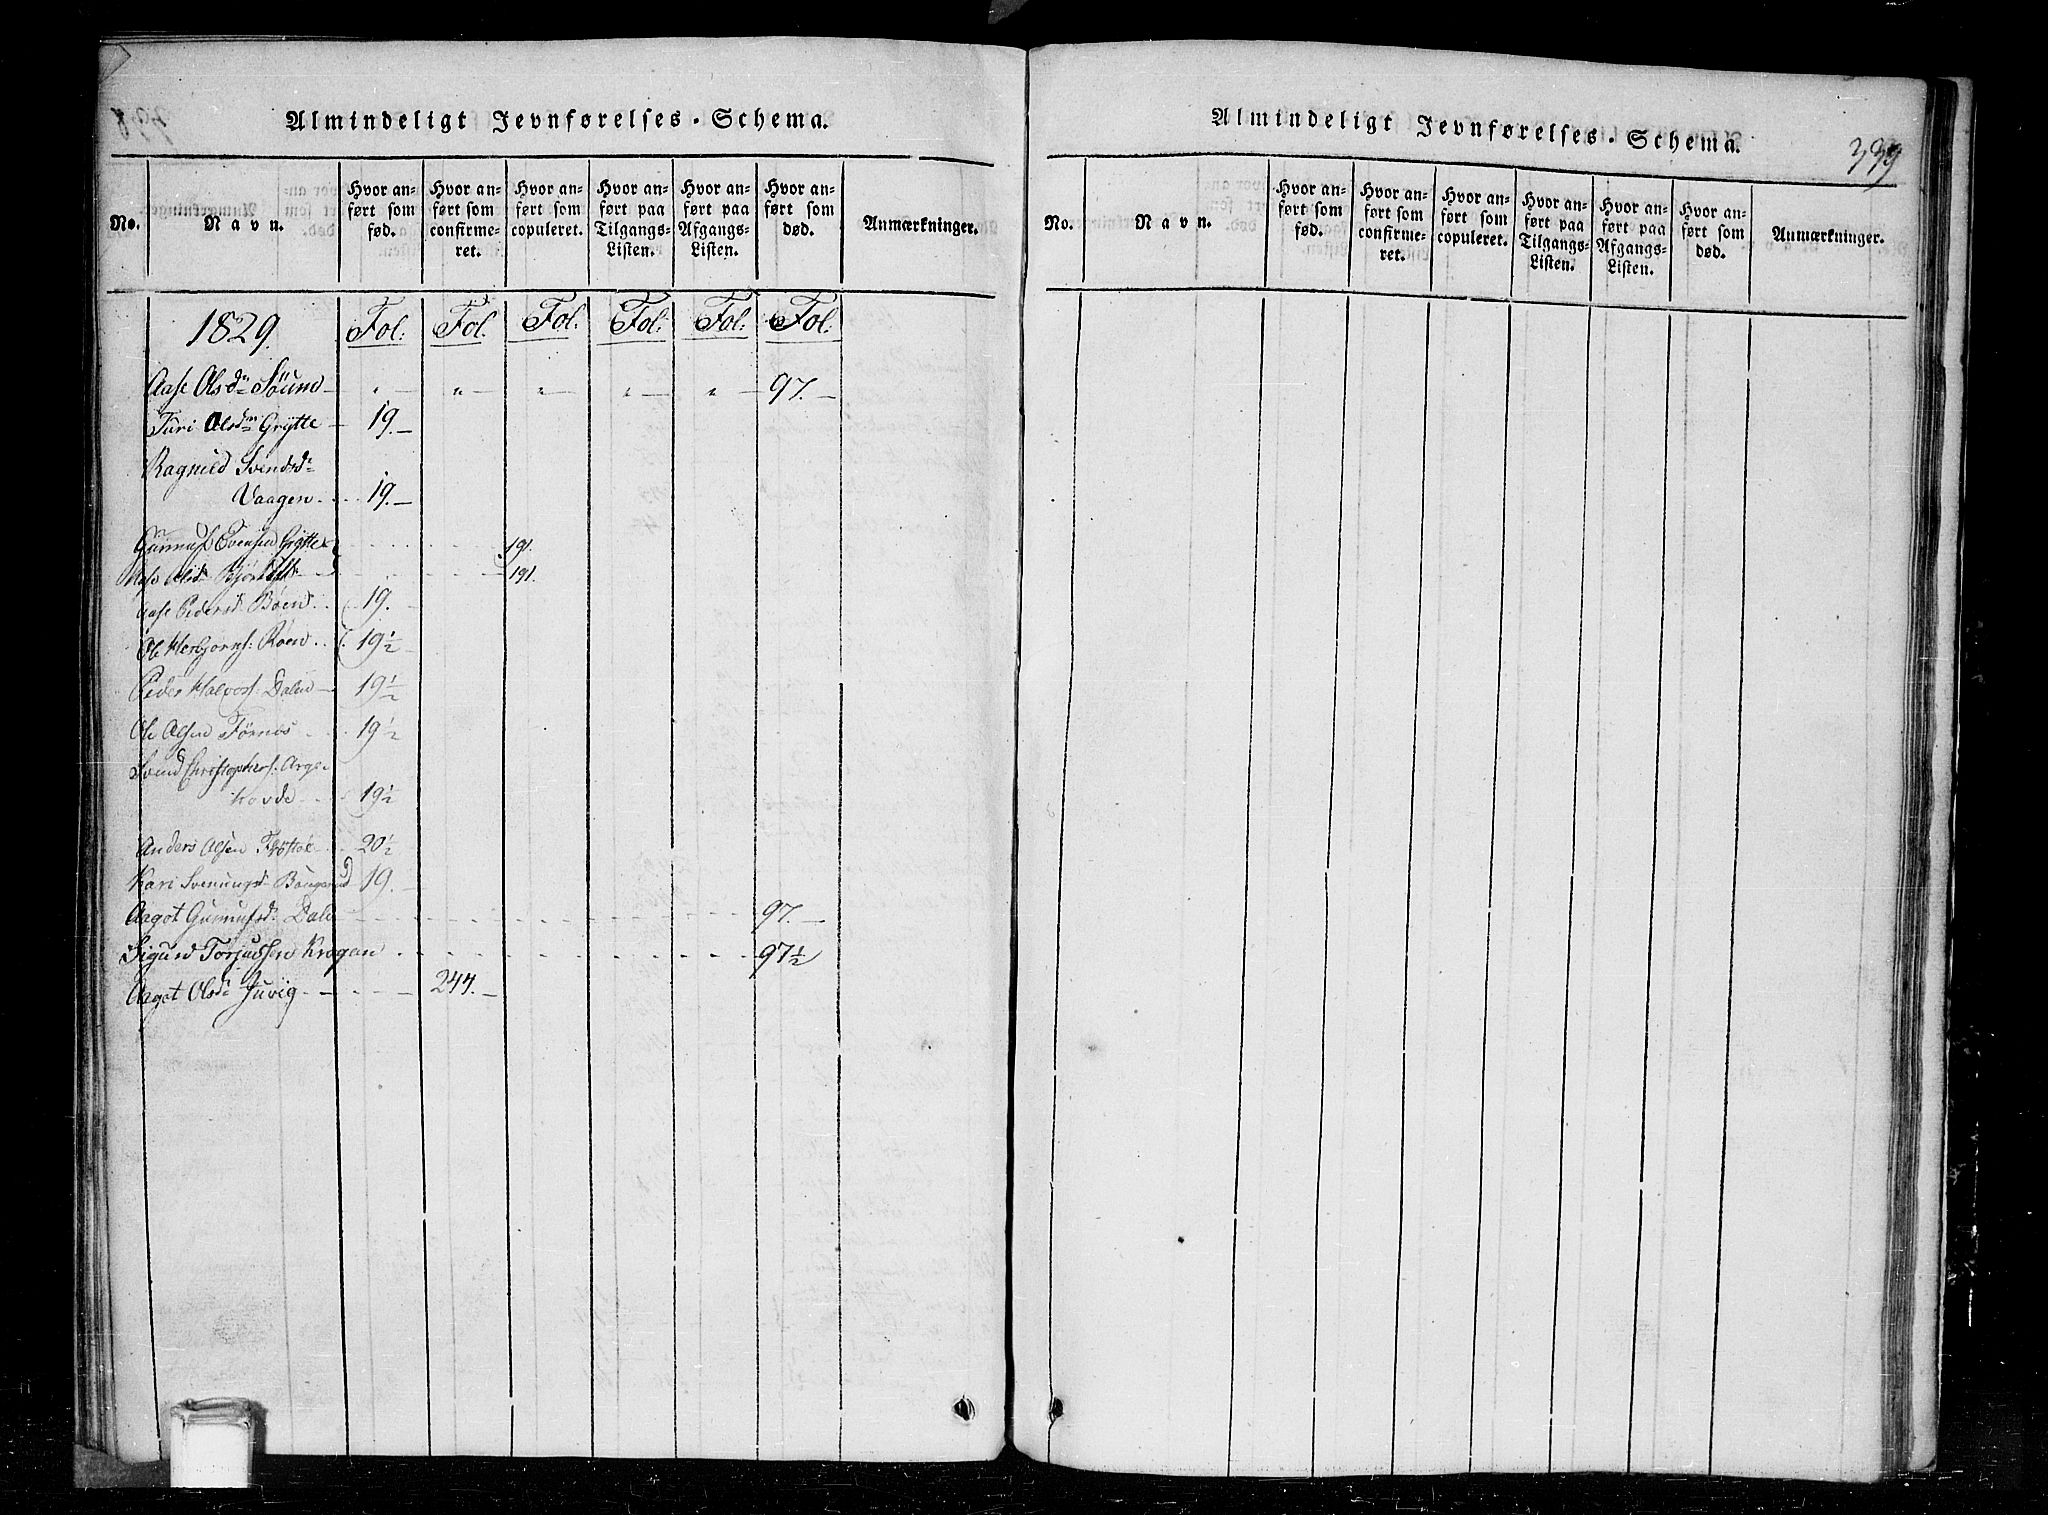 Almindeligt Jevnførelses-Schema.
No. Navn. Hvor anført som fød. Hvor anført som confirmeret. Hvor anført som copuleret. Hvor anført paa Tilgangs-Listen. Hvor anført paa Afgangs-Listen. Hvor anført som død. Anmærkninger.
1829. Fol: Fol. Fol. Fol. Fol. Fol.
Aase Olsdr 97.
Turi Olsdr Grytte 19.
Ragnild Svendsdr
Vaagen 19.
Gunnuf Evensen Grytte 191.
Aase Olsdr 191.
Aase Pedersd. Bøen 19.
Ole Herbjørns: Roen 19½
Peder Halvors: Dalen 19½
Ole Olsen Førnes 19½
Svend Christophers: Arge-
hovde 19½
Anders Olsen 20½
Kari Svenungsd. 19.
Aagot Gunnufsd: Dale 97.
Sigurd Torjussen Krogan 97½
Aagot Olsd: Juvig 244.
Almindeligt Jevnførelses-Schema.
339
No. Navn. Hvor anført som fød. Hvor anført som confirmeret. Hvor anført som copuleret. Hvor anført paa Tilgangs-Listen. Hvor anført paa Afgangs-Listen. Hvor anført som død. Anmærkninger.